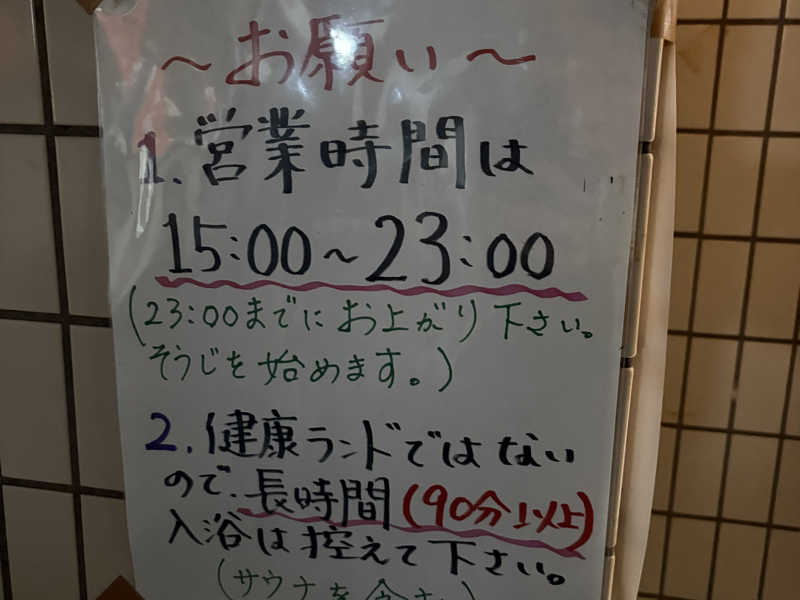 ～お願い～
1.営業時間は
15:00～23:00
(23:00までにお上がり下さい。
そうじを始めます。)
2.健康ランドではない
ので、長時間(90分以上)
入浴は控えて下さい。
(サウナを含む)